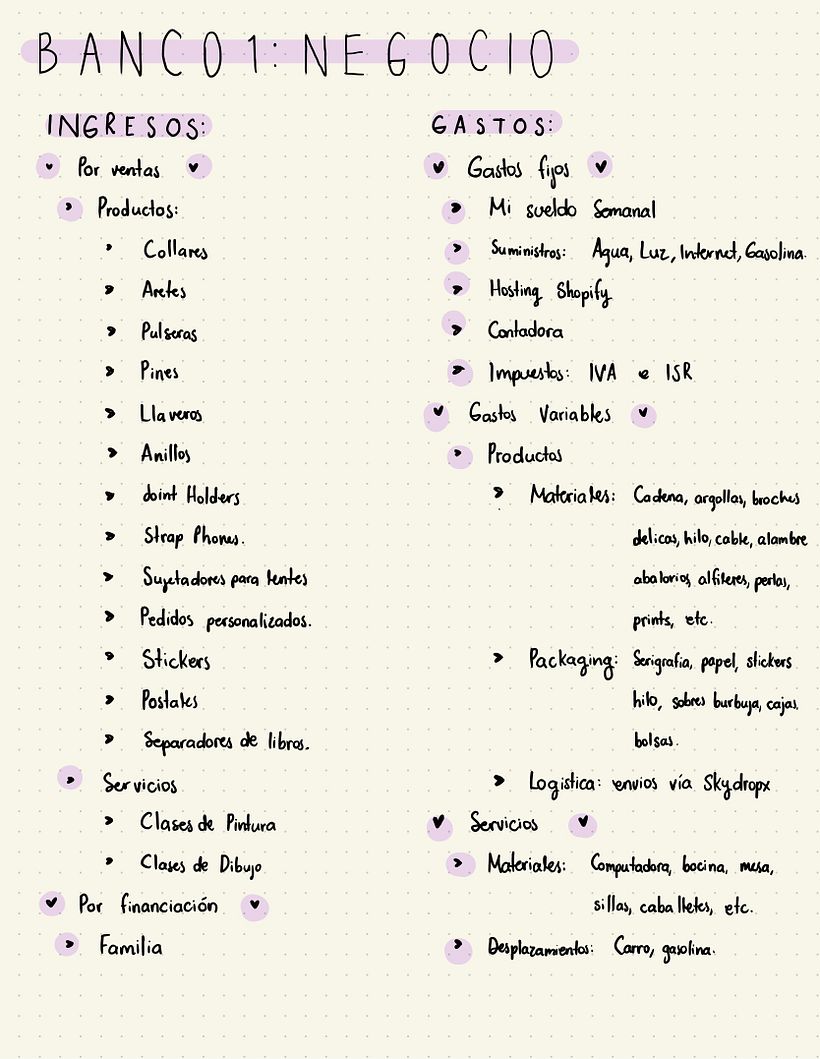 BANCO 1: NEGOCIO
INGRESOS:
Por ventas
Productos:
Collares
Aretes
Pulseras
Pines
Llaveros
Anillos
Joint Holders
Strap Phones.
Sujetadores para lentes
Pedidos personalizados.
Stickers
Postales
Separadores de libros.
Servicios
Clases de Pintura
Clases de Dibujo
Por financiación
Familia
GASTOS:
Gastos fijos
Mi sueldo Semanal
Suministros: Agua, Luz, Internet, Gasolina.
Hosting Shopify
Contadora
Impuestos: IVA e ISR
Gastos Variables
Productos
Materiales: Cadena, argollas, broches
delicas, hilo, cable, alambre
abalorios, alfileres, perlas,
prints, etc.
Packaging: Serigrafia, papel, stickers
hilo, sobres burbuja, cajas,
bolsas.
Logistica: envios vía Skydropx
Servicios
Materiales: Computadora, bocina, mesa,
sillas, caballetes, etc.
Desplazamientos: Carro, gasolina.